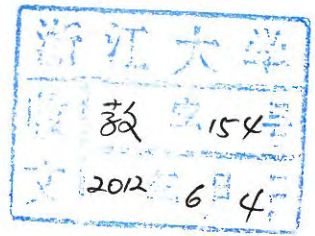 浙江大学
收 教 字 154 号
文 2012 年 6 月 4 日